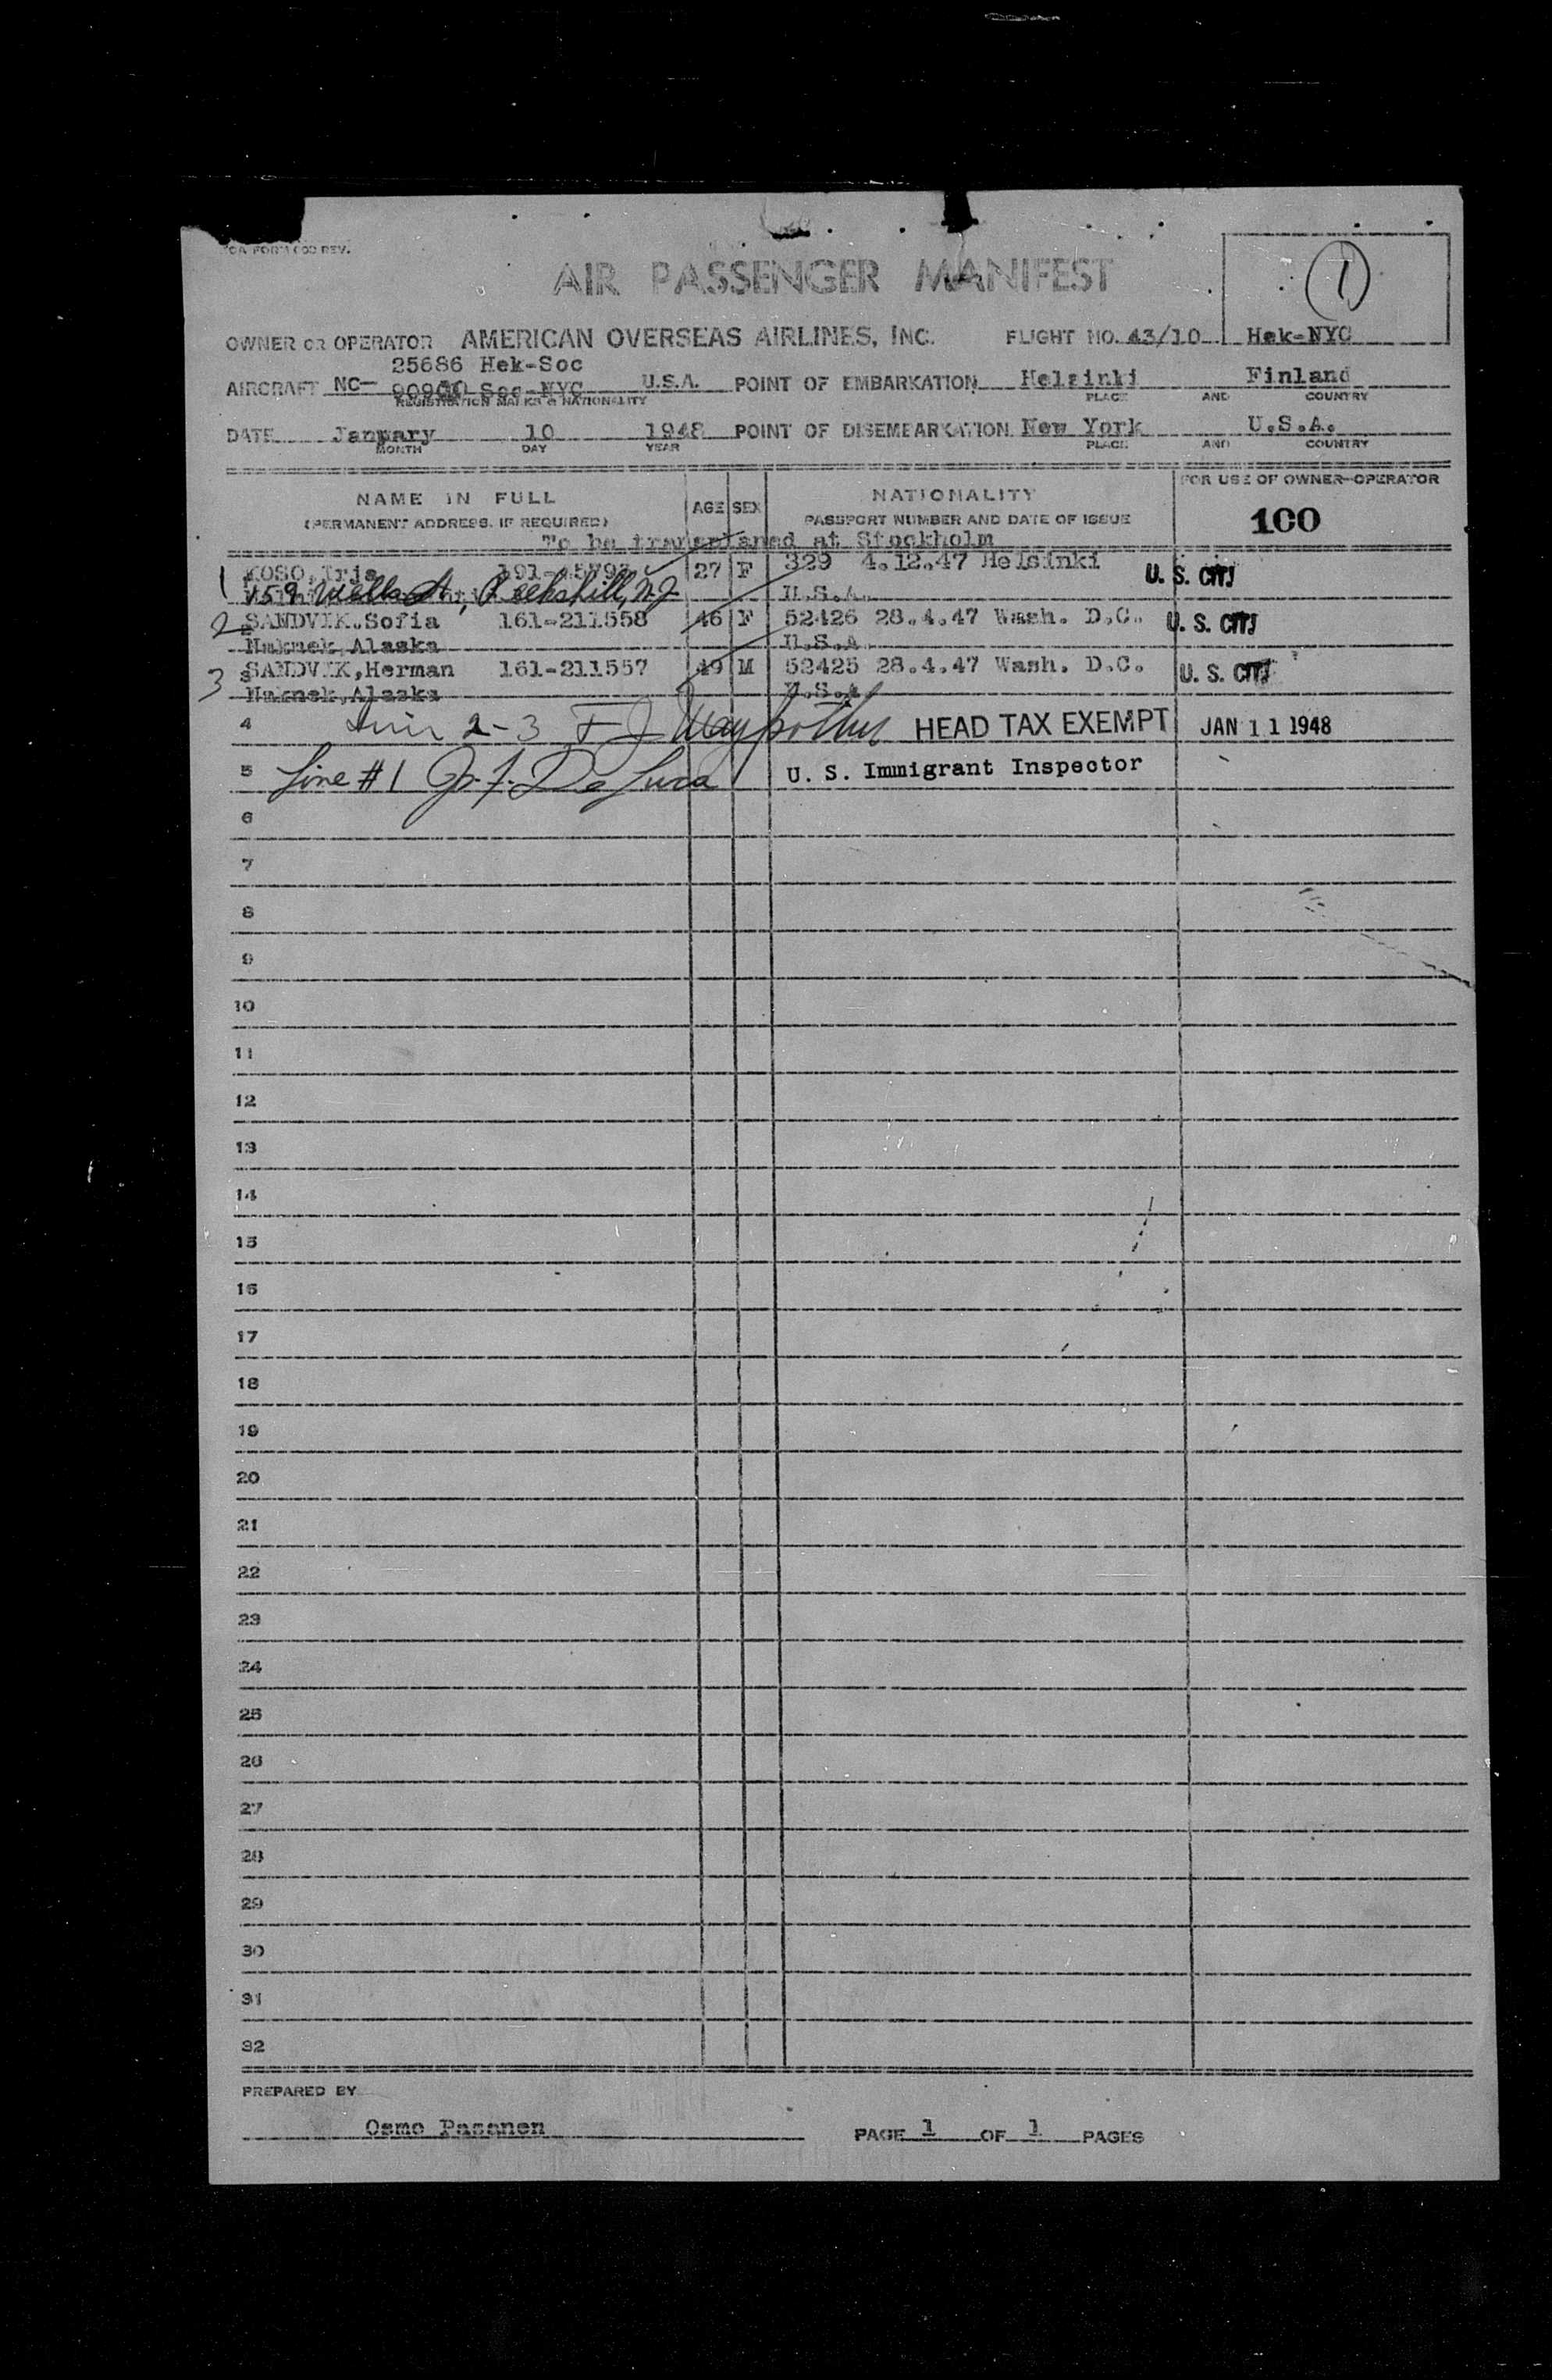 REV.
1
AIR PASSENGER MANIFEST
OWNER OR OPERATOR AMERICAN OVERSEAS AIRLINES, INC. FLIGHT NO. 43/10 Hek-NYC
25686 Hek-Soc
AIRCRAFT NC- Soc-NYC U.S.A. POINT OF EMBARKATION Helsinki Finland
REGISTRATION MARKS & NATIONALITY PLACE AND COUNTRY
DATE January 10 1948 POINT OF DISEMBARKATION New York U.S.A.
MONTH DAY YEAR PLACE AND COUNTRY
NAME IN FULL AGE SEX NATIONALITY FOR USE OF OWNER-OPERATOR
(PERMANENT ADDRESS, IF REQUIRED) PASSPORT NUMBER AND DATE OF ISSUE 100
To be at Stockholm
1 KOSO, Irja 27 F 329 4.12.47 Helsinki U. S. CIT
N.J. U.S.A.
2 SANDVIK, Sofia 161-211558 46 F 52426 28.4.47 Wash. D.C. U. S. CIT
Naknek, Alaska U.S.A.
3 SANDVIK, Herman 161-211557 49 M 52425 28.4.47 Wash. D.C. U. S. CIT
Naknek, Alaska U.S.A.
4 2-3 HEAD TAX EXEMPT JAN 11 1948
5 Line #1 De Luca U. S. Immigrant Inspector
6
7
8
9
10
11
12
13
14
15
16
17
18
19
20
21
22
23
24
25
26
27
28
29
30
31
32
PREPARED BY
Osmo Pasanen PAGE 1 OF 1 PAGES